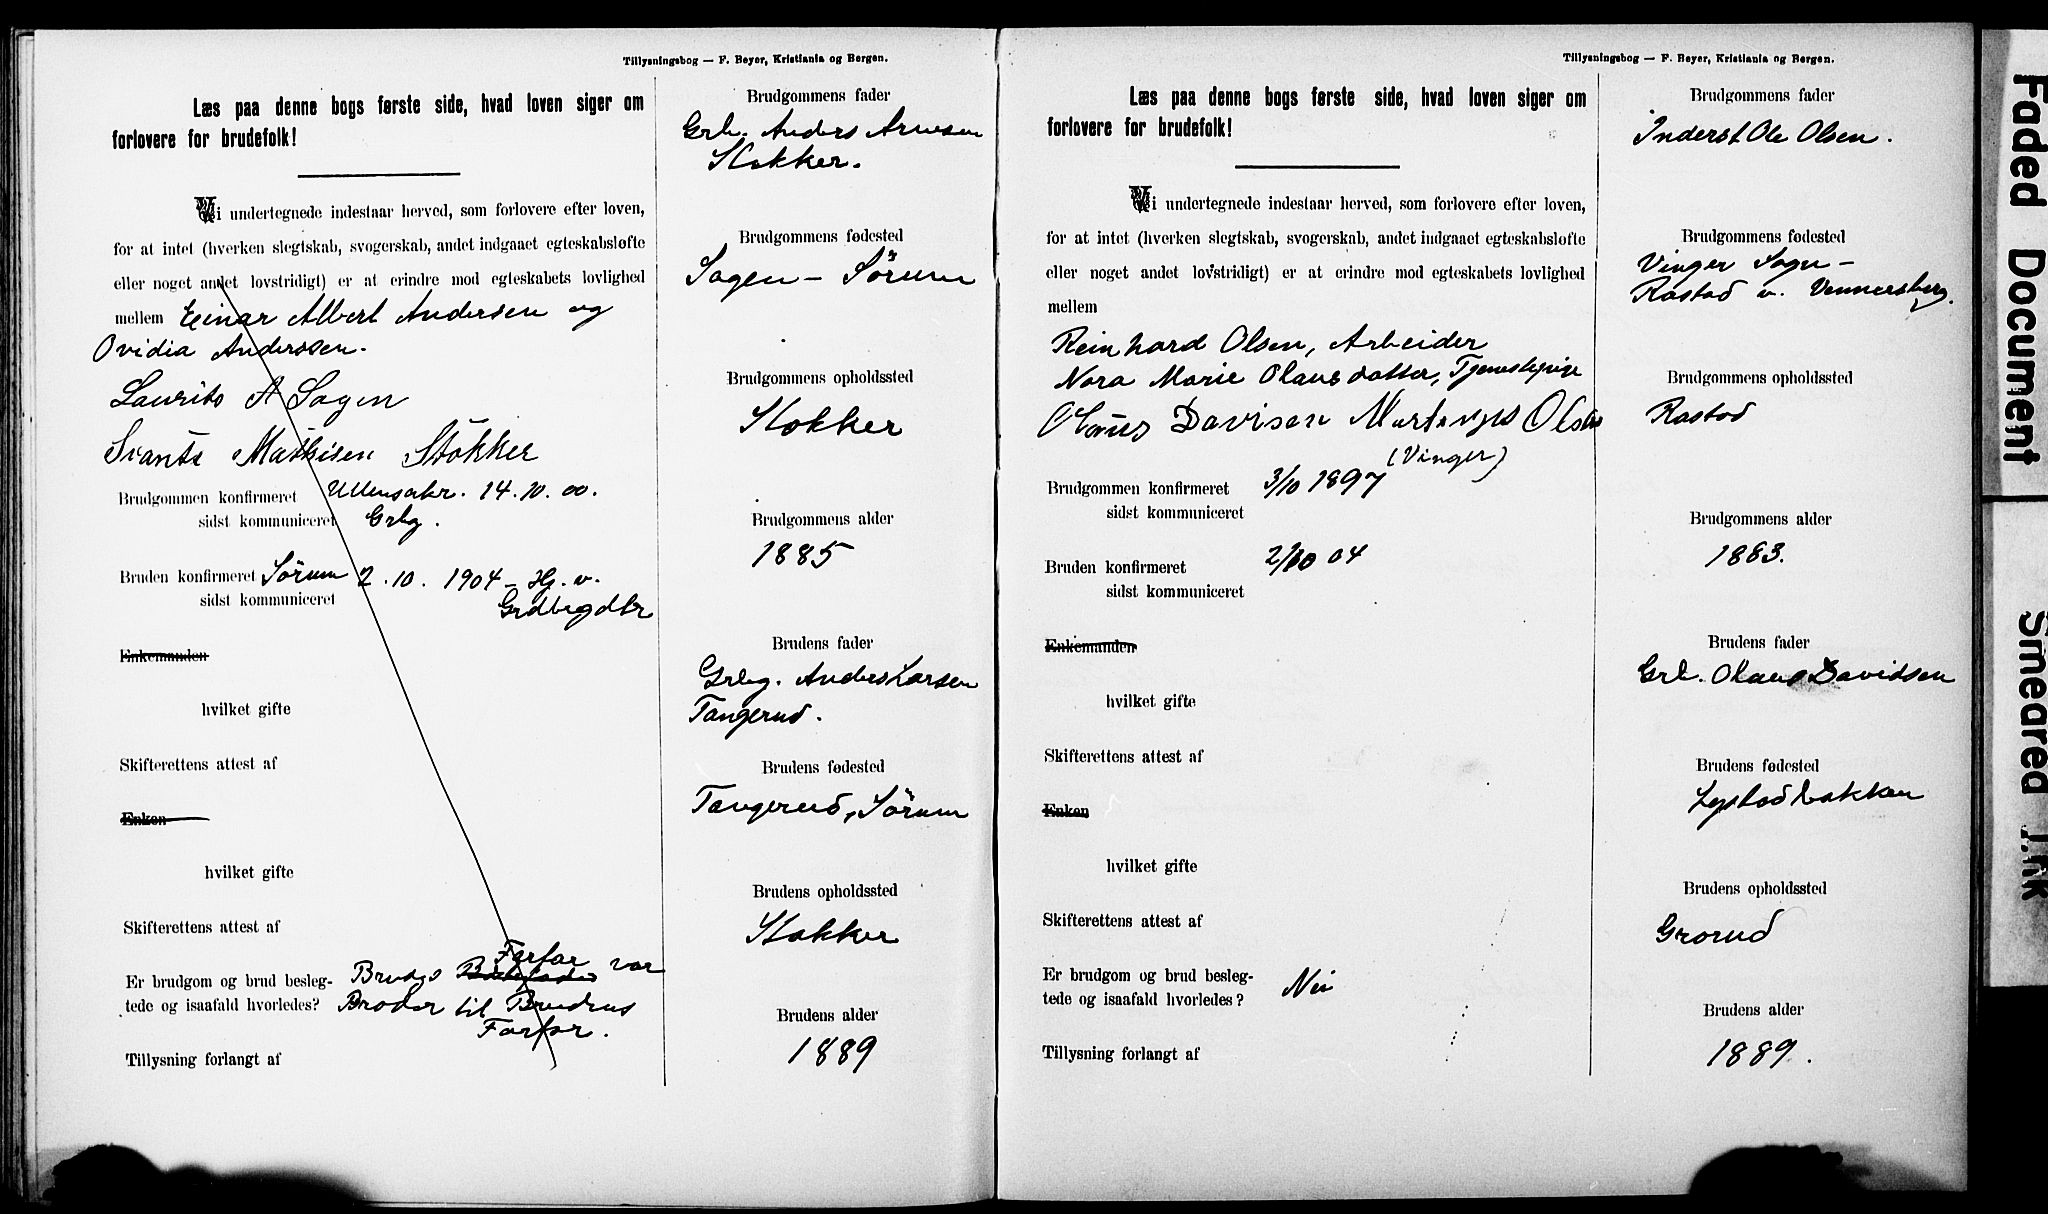 Tillysningsbog — F. Beyer, Kristiania og Bergen.
Læs paa denne bogs første side, hvad loven siger om
forlovere for brudefolk!
Vi undertegnede indestaar herved, som forlovere efter loven,
for at intet (hverken slegtskab, svogerskab, andet indgaaet egteskabsløfte
eller noget andet lovstridigt) er at erindre mod egteskabets lovlighed
mellem Einar Albert Andersen og
Ovidia Anderssen.
Laurits A Sagen
Svants Mathisen Stokker
Brudgommen konfirmeret Ullensakr. 14.10.00.
sidst kommuniceret Grbg.
Bruden konfirmeret Sørum 2.10.1904 – Hj. v.
sidst kommuniceret Grdbrgdtr
Enkemanden
hvilket gifte
Skifterettens attest af
Enken
hvilket gifte
Skifterettens attest af
Farfar var
Er brudgom og brud besleg- Brudgs
tede og isaafald hvorledes? Broder til Brudens
Farfar.
Tillysning forlangt af
Brudgommens fader
Grb. Anders Arnesen
Stokker.
Brudgommens fødested
Sagen – Sørum
Brudgommens opholdssted
Stokker
Brudgommens alder
1885
Brudens fader
Grbg. Anders Larsen
Tangerud.
Brudens fødested
Tangerud, Sørum
Brudens opholdssted
Stokker
Brudens alder
1889
Tillysningsbog — F. Beyer, Kristiania og Bergen.
Læs paa denne bogs første side, hvad loven siger om
forlovere for brudefolk!
Vi undertegnede indestaar herved, som forlovere efter loven,
for at intet (hverken slegtskab, svogerskab, andet indgaaet egteskabsløfte
eller noget andet lovstridigt) er at erindre mod egteskabets lovlighed
mellem
Reinhard Olsen, Arbeider
Nora Marie Olausdatter, Tjenestepige
Olaus Davisen Martinus Olsen
(Vinger)
Brudgommen konfirmeret 3/10 1897
sidst kommuniceret
Bruden konfirmeret 2/10 04
sidst kommuniceret
Enkemanden
hvilket gifte
Skifterettens attest af
Enken
hvilket gifte
Skifterettens attest af
Er brudgom og brud besleg-
tede og isaafald hvorledes? Nei
Tillysning forlangt af
Brudgommens fader
Inderst Ole Olsen.
Brudgommens fødested
Vinger Sogn –
Rastad v. Vennersberg.
Brudgommens opholdssted
Rastad
Brudgommens alder
1883.
Brudens fader
Grb. Olaus Davidsen
Brudens fødested
Lystadbakken
Brudens opholdssted
Grorud
Brudens alder
1889.
Faded Document
Smeared Ink